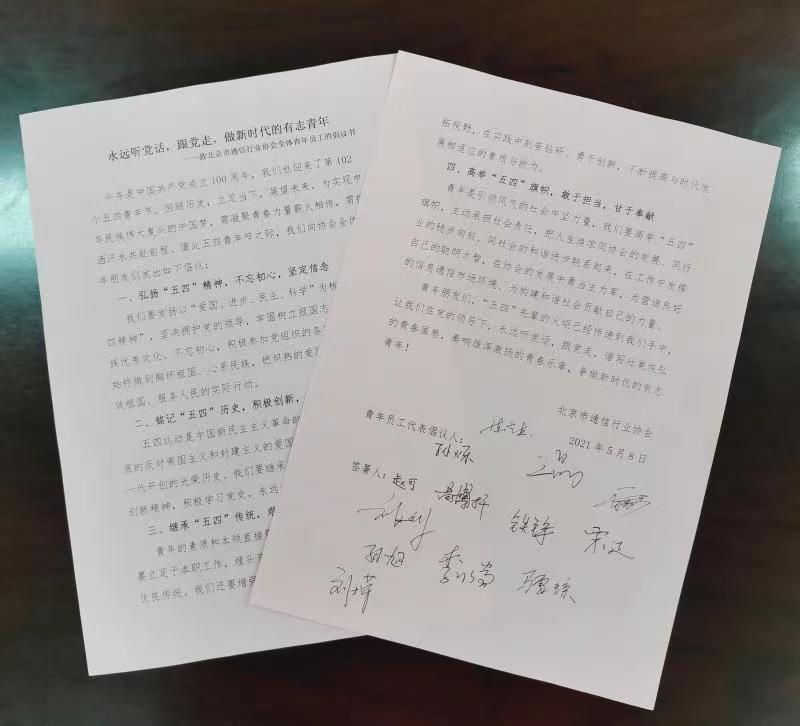 永远听党话，跟党走，做新时代的有志青年
——致北京市通信行业协会全体青年员工的倡议书
今年是中国共产党成立100周年，我们也迎来了第102
个五四青年节。回顾历史，立足当下，展望未来，为实现中
华民族伟大复兴的中国梦，需凝聚青春力量薪火相传，需挥
洒汗水共赴前程。值此五四青年节之际，我们向协会全体
年朋友们发出如下倡议：
一、弘扬“五四”精神，不忘初心，坚定信念
我们要发扬以“爱国、进步、民主、科学”为核
四精神”，坚决拥护党的领导，牢固树立报国志
族优秀文化，不忘初心，积极参加党组织的各
始终做到胸怀祖国、心系民族，把炽热的爱
效祖国、服务人民的实际行动。
二、铭记“五四”历史，积极创新，
五四运动是中国新民主主义革命的
底的反对帝国主义和封建主义的爱国
一代开创的光荣历史。我们要继承
创新精神，积极学习党史，永远
三、继承“五四”传统，
青年的素质和本领直接
要立足于本职工作，埋头
优良传统。我们还要增强
拓视野，在实践中刻苦钻研、勇于创新，不断提高与时代发
展相适应的素质与能力。
四、高举“五四”旗帜，敢于担当，甘于奉献
青年是引领风气的社会中坚力量，我们要高举“五四”
旗帜，主动承担社会责任，把人生追求同协会的发展、同行
业的稳步向前、同社会的和谐进步联系起来，在工作中发挥
自己的聪明才智，在协会的发展中勇当主力军，为营造良好
的信息通信市场环境、为构建和谐社会贡献自己的力量。
青年朋友们，“五四”先辈的火炬已经传递到我们手中，
让我们在党的领导下，永远听党话，跟党走，谱写壮美恢弘
的青春画卷，奏响雄浑激扬的青春乐章，争做新时代的有志
青年！
北京市通信行业协会
2021年5月8日
青年员工代表倡议人：
孙烁
签署人：赵可
孙旭